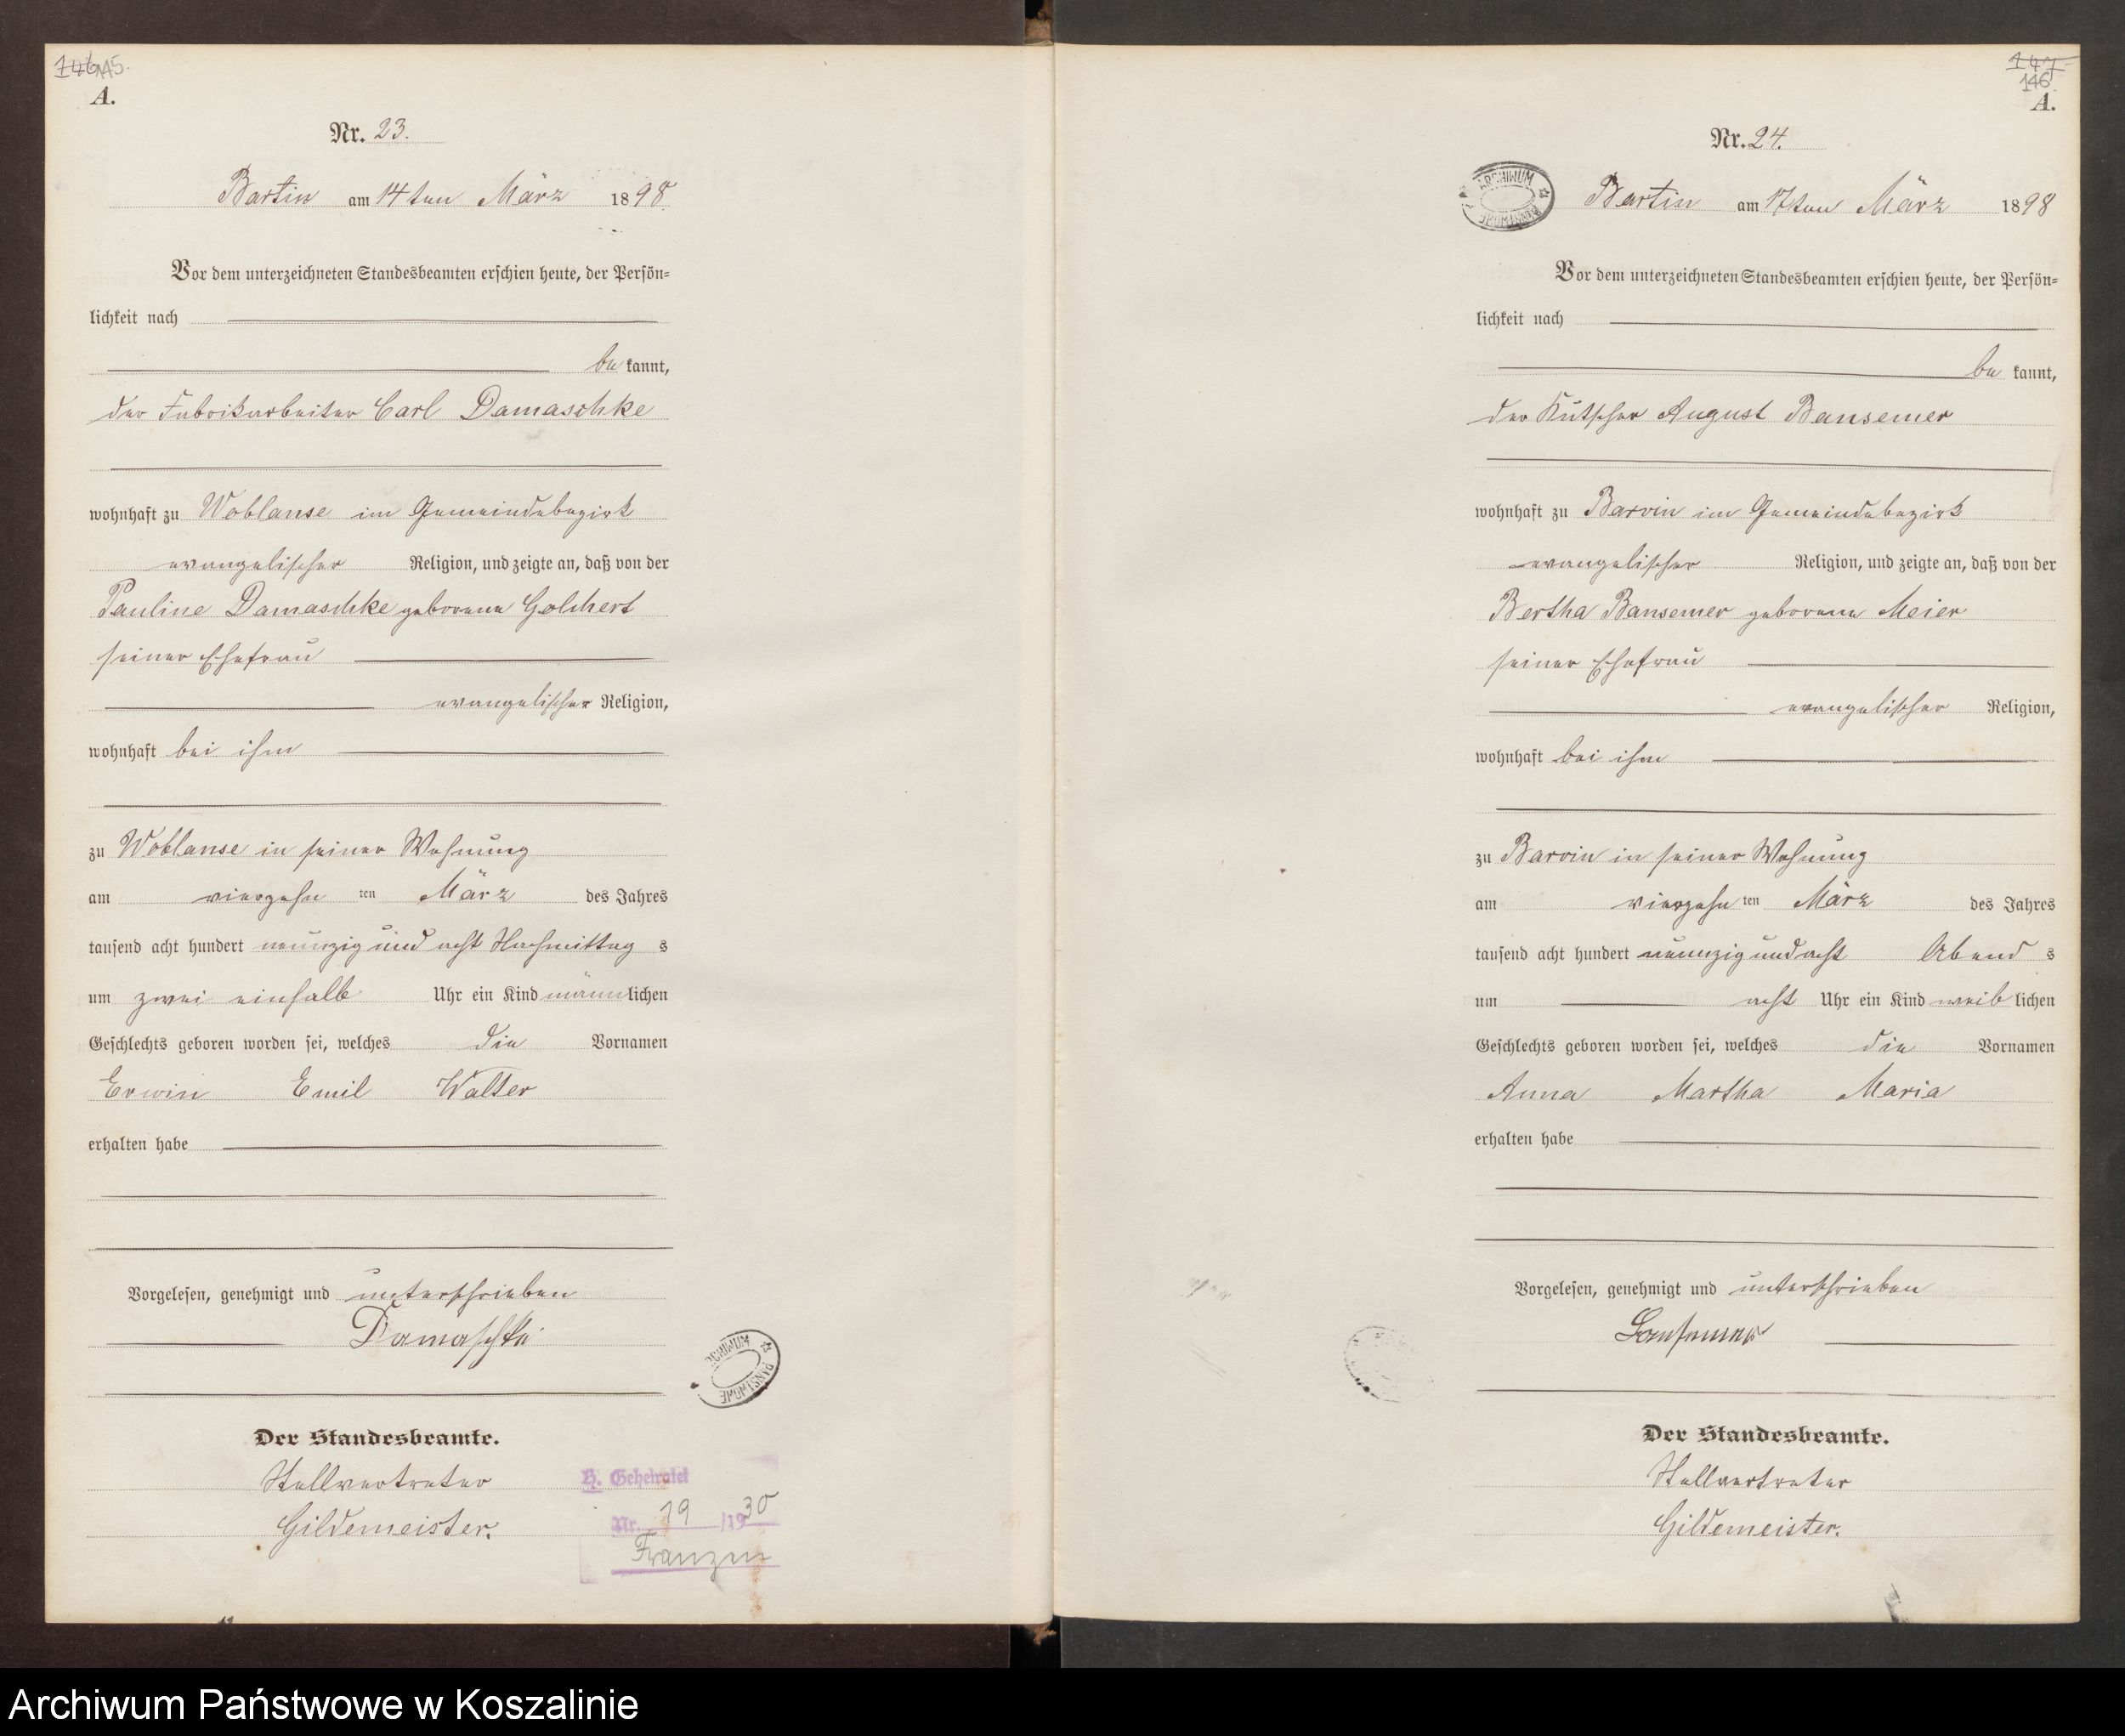 145.
A.
Nr. 23.
Bartin am 14ten März 1898.
Vor dem unterzeichneten Standesbeamten erschien heute, der Persön-
lichkeit nach
bekannt,
der Fabrikarbeiter Carl Damaschke
wohnhaft zu Woblanse im Gemeindebezirk
evangelischer Religion, und zeigte an, daß von der
Pauline Damaschke geborene Golchert
seiner Ehefrau
evangelischer Religion,
wohnhaft bei ihm
zu Woblanse in seiner Wohnung
am vierzehn ten März des Jahres
tausend acht hundert neunzig und acht Nachmittag s
um zwei einhalb Uhr ein Kind männlichen
Geschlechts geboren worden sei, welches die Vornamen
Erwin Emil Walter
erhalten habe
Vorgelesen, genehmigt und unterschrieben
Damaschke
ARCHIWUM PAŃSTWOWE
Der Standesbeamte.
Stellvertreter
Gildemeister.
H. Geheiratet
Nr. 19 /1930
Franzen
147
146
A.
Nr. 24.
ARCHIWUM PAŃSTWOWE
Bartin am 17ten März 1898
Vor dem unterzeichneten Standesbeamten erschien heute, der Persön-
lichkeit nach
bekannt,
der Kutscher August Bansemer
wohnhaft zu Barvin im Gemeindebezirk
evangelischer Religion, und zeigte an, daß von der
Bertha Bansemer geborene Meier
seiner Ehefrau
evangelischer Religion,
wohnhaft bei ihm
zu Barvin in seiner Wohnung
am vierzehn ten März des Jahres
tausend acht hundert neunzig und acht Abend s
um acht Uhr ein Kind weiblichen
Geschlechts geboren worden sei, welches die Vornamen
Anna Martha Maria
erhalten habe
Vorgelesen, genehmigt und unterschrieben
Bansemer
Der Standesbeamte.
Stellvertreter
Gildemeister.
Archiwum Państwowe w Koszalinie